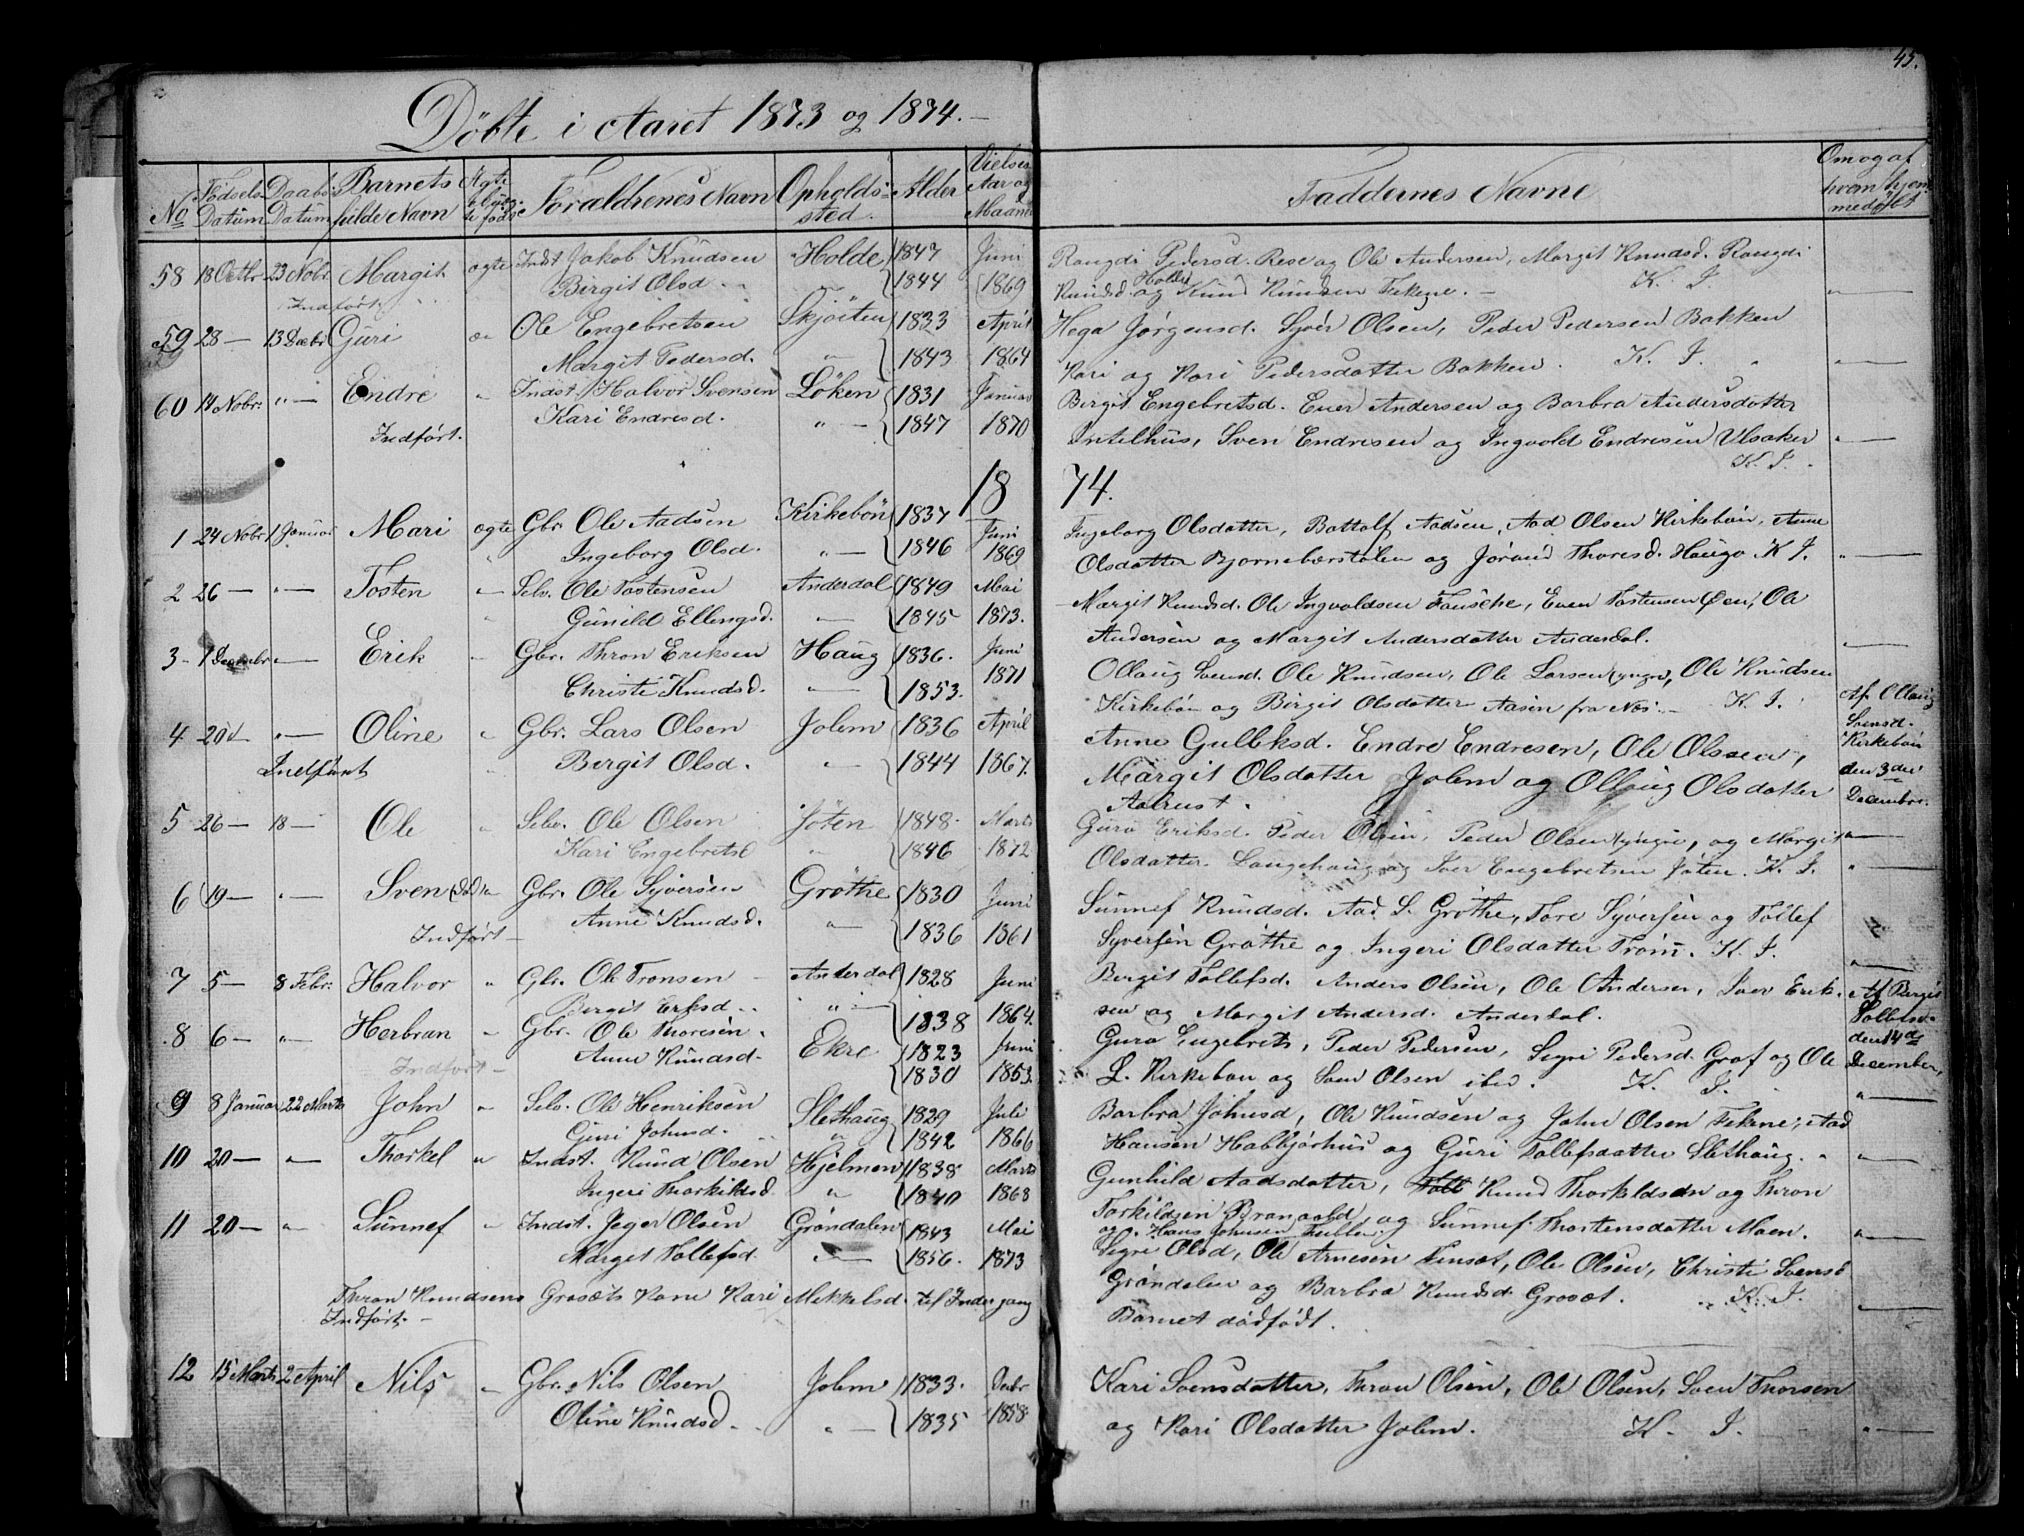 45.
Döbte i Aaret 1873 og 1874.
No Födsels Datum Daabs Datum Barnets fulde Navn Ægte eller uægte föds Forældrenes Navn Opholdssted. Alder Vielses Aar og Maaned Faddernes Navne Om og af hvem hjemmedöbt
58 18 Octbr 23 Nobr Margit ægte Indst Jakob Knudsen Holde 1847 Juni Rangdi Pedersd. Rese og Ole Andersen, Margit Knudsd. Rangdi
Indført. Birgit Olsd. 1844 1869 Knudsd. Holde og Knud Knudsen Tekne. K. I.
59 28 — 13 Decbr Guri Ole Engebretsen Skjöiten 1833 April Hega Jørgensd. Syver Olsen, Peder Pedersen Bakken
Margit Pedersd. 1843 1864 Kari og Kari Pedersdatter Bakken. K. I.
60 14 Nobr. " — Endre " Indst. Halvor Svensen Löken 1831 Januar Birgit Engebretsd. Ever Andersen og Barbra Andersdatter
Indført. Kari Endresd. " — 1847 1870 Intelhus, Sven Endresen og Ingvold Endresen Ulsaker
K. I.
1874.
1 24 Nobr 1 Januar Mari ægte Gbr. Ole Aadsen Kirkebön 1837 Juni Ingeborg Olsdatter, Bottolf Aadsen, Aad Olsen Kirkebön, Anne
Ingeborg Olsd. " — 1846 1869 Olsdatter Bjørnebærstölen og Jörand Thoresd. Haugo K I.
2 26 — " — Tosten " Selv. Ole Tostensen Anderdal 1849 Mai Margit Knudsd. Ole Ingvoldsen Fausche, Even Tostensen Øen, Ole
Gunild Ellengsd. 1845 1873. Andersen og Margit Andersdatter Anderdal.
3 1 Decembr " — Erik " Gbr. Thron Eriksen Haug 1836. Juni Ollaug Svensd. Ole Knudsen, Ole Larsen yngre, Ole Knudsen
Christi Knudsd. 1853. 1871 Kirkebön og Birgit Olsdatter Aasen fra Næs. K. I. Af Ollaug
4 20 d " — Oline " Gbr. Lars Olsen Jolem 1836 April Anne Gulleksd. Endre Endresen, Ole Olssen, Svensd. Kirkebön
Indført Birgit Olsd. " 1844 1867. Margit Olsdatter Jolem og Ollaug Olsdatter den 3 die
Aalrust. Decembr.
5 26 — 18 — Ole " Selv. Ole Olsen Jöten 1848. Marts Guro Eriksd. Peder Olsen, Peder Olsen yngre, og Margit
Kari Engebretsd " 1846 1872 Olsdatter Langehaug og Iver Engebretsen Jöten. K. I.
6 19 — " — Sven (död) Gbr. Ole Syversen Gröthe 1830 Juni Sunnef Knudsd. Aad S. Gröthe, Tore Syversen og Tollef
Indført Anne Knudsd. " 1836 1861 Syversen Gröthe og Ingeri Olsdatter Tröim. K. I.
7 5 — 8 Febr. Halvor " Gbr. Ole Tronsen Anderdal 1828 Juni Birgit Tollefsd. Anders Olsen, Ole Andersen, Iver Erik-
Birgit Eriksd. " — 1838 1864. sen og Margit Andersd. Anderdal. Af Birgit
8 6 — " — Herbran " Gbr. Ole Thoresen Ekre 1823 Juni Guro Engebrets, Peder Pedersen, Segri Pedersd. Graf og Ole Tollefsd. den 14de
Indført Anne Knudsd. 1830 1853. L. Kirkebön og Sven Olsen ibid. K. I. December,
9 8 Januar 22 Marts John " Selv. Ole Henriksen Slethaug 1829 Juli Barbra Johnsd, Ole Knudsen og John Olsen Tekne, Aad
Guri Johnsd. " 1842 1866 Hansen Habbjörhus og Guri Tollefsdatter Slethaug.
10 20 — " — Thorkel " Indst. Knud Olsen Hjelmen 1838 Marts Gunhild Aadsdatter, Knud Thorkildsen og Thron
Ingeri Thorkildsd. " 1840 1868 Torkildsen Branvold, og Sunnef Thorstensdatter Moen.
og Hans Johnsen
11 20 — " — Sunnef " Indst. Jeger Olsen Gröndalen 1843 Mai Segre Olsd, Ole Arnesen Finset, Ole Olsen, Christi Svensd
Marget Tollefsd. " 1856. 1873 Gröndalen og Barbra Knudsd. Grosæt. K. I.
Thron Knudsens Grosæts Kone Kari Mikkelsd. til Indgang Barnet dödfödt.
Indført.
12 15 Marts 2 April Nils " Gbr. Nils Olsen Jolem 1833. Decbr Kari Svensdatter, Thron Olsen, Ole Olsen, Sven Thorsen
Oline Knudsd. " — 1835 1858 og Kari Olsdatter Jolem. K. I.